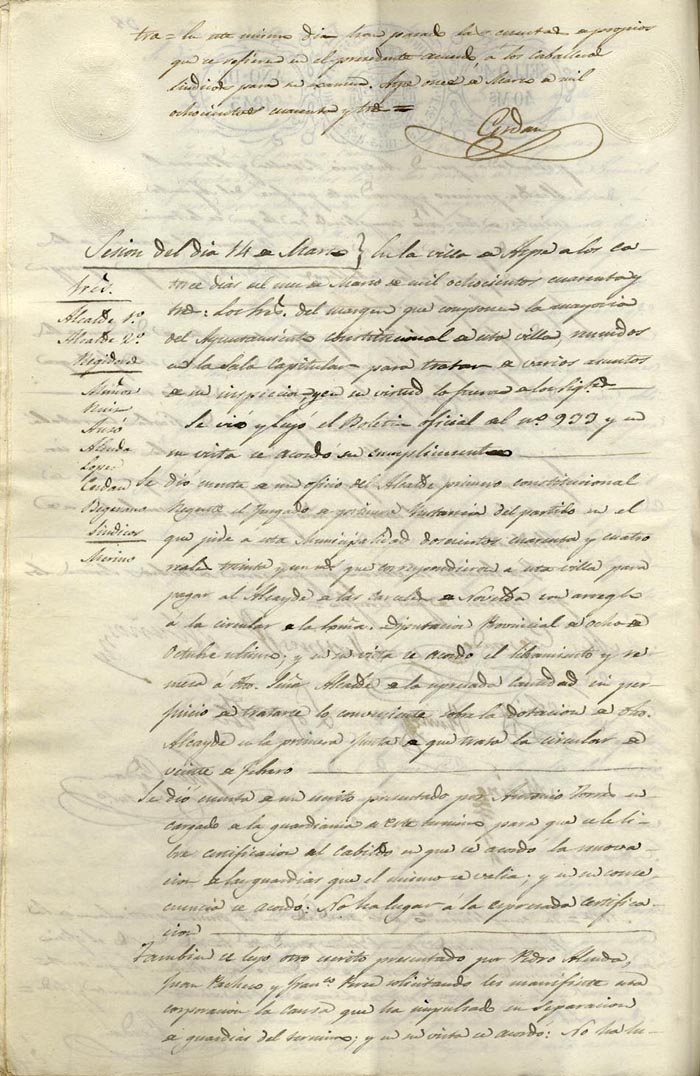 tra = En este mismo dia han pasado las cuentas de propios
que se refiere en el precedente acuerdo a los Caballeros
Sindicos para su examen. Aspe once de Marzo de mil
ochocientos cuarenta y tres =
Cerdan
Sesion del dia 14 de Marzo } En la villa de Aspe a los ca-
torce dias del mes de Marzo de mil ochocientos cuarenta y
tres: Los Sres. del margen que componen la mayoria
del Ayuntamiento constitucional de esta villa, reunidos
en la Sala Capitular para tratar de varios asuntos
de su inspeccion y en su virtud lo fueron los sigtes.
Sres.
Alcalde 1º
Alcalde 2º
Regidores
Miñon
Ruiz
Alenda
Lopez
Cerdan
Sindicos
Merino
Se vió y leyó el Boletin oficial del nº 933 y en
su vista se acordó su cumplimiento
Se dió cuenta de un oficio del Alcalde primero constitucional
Regente el Juzgado de primera Instancia del partido en el
que pide a esta Municipalidad doscientos cuarenta y cuatro
reales treinta y un mrs que correspondieron a esta villa para
pagar al Alcayde de las carceles de Novelda con arreglo
á la circular de la Exma. Diputacion Provincial de ocho de
Octubre ultimo; y en su vista se acordó el libramiento y re-
mesa á dho. Señor Alcalde de la espresada cantidad sin per
juicio de tratarse lo conveniente sobre la dotacion de dho.
Alcayde en la primera Junta de que trata la circular de
veinte de febrero
Se dió cuenta de un escrito presentado por Antonio Torres en
cargado de la guardiania de este termino para que se le li-
bre certificacion del Cabildo en que se acordó la renova-
cion de las guardias que el mismo se valia; y en su conse
cuencia se acordó: No ha lugar á la espresada certifica-
cion
Tambien se leyo otro escrito presentado por Pedro Alenda,
Juan Pacheco y Franco. Perez solicitando les manifieste esta
corporacion la causa que ha impulsado su separacion
de guardias del termino; y en su vista se acordó: No ha lu-